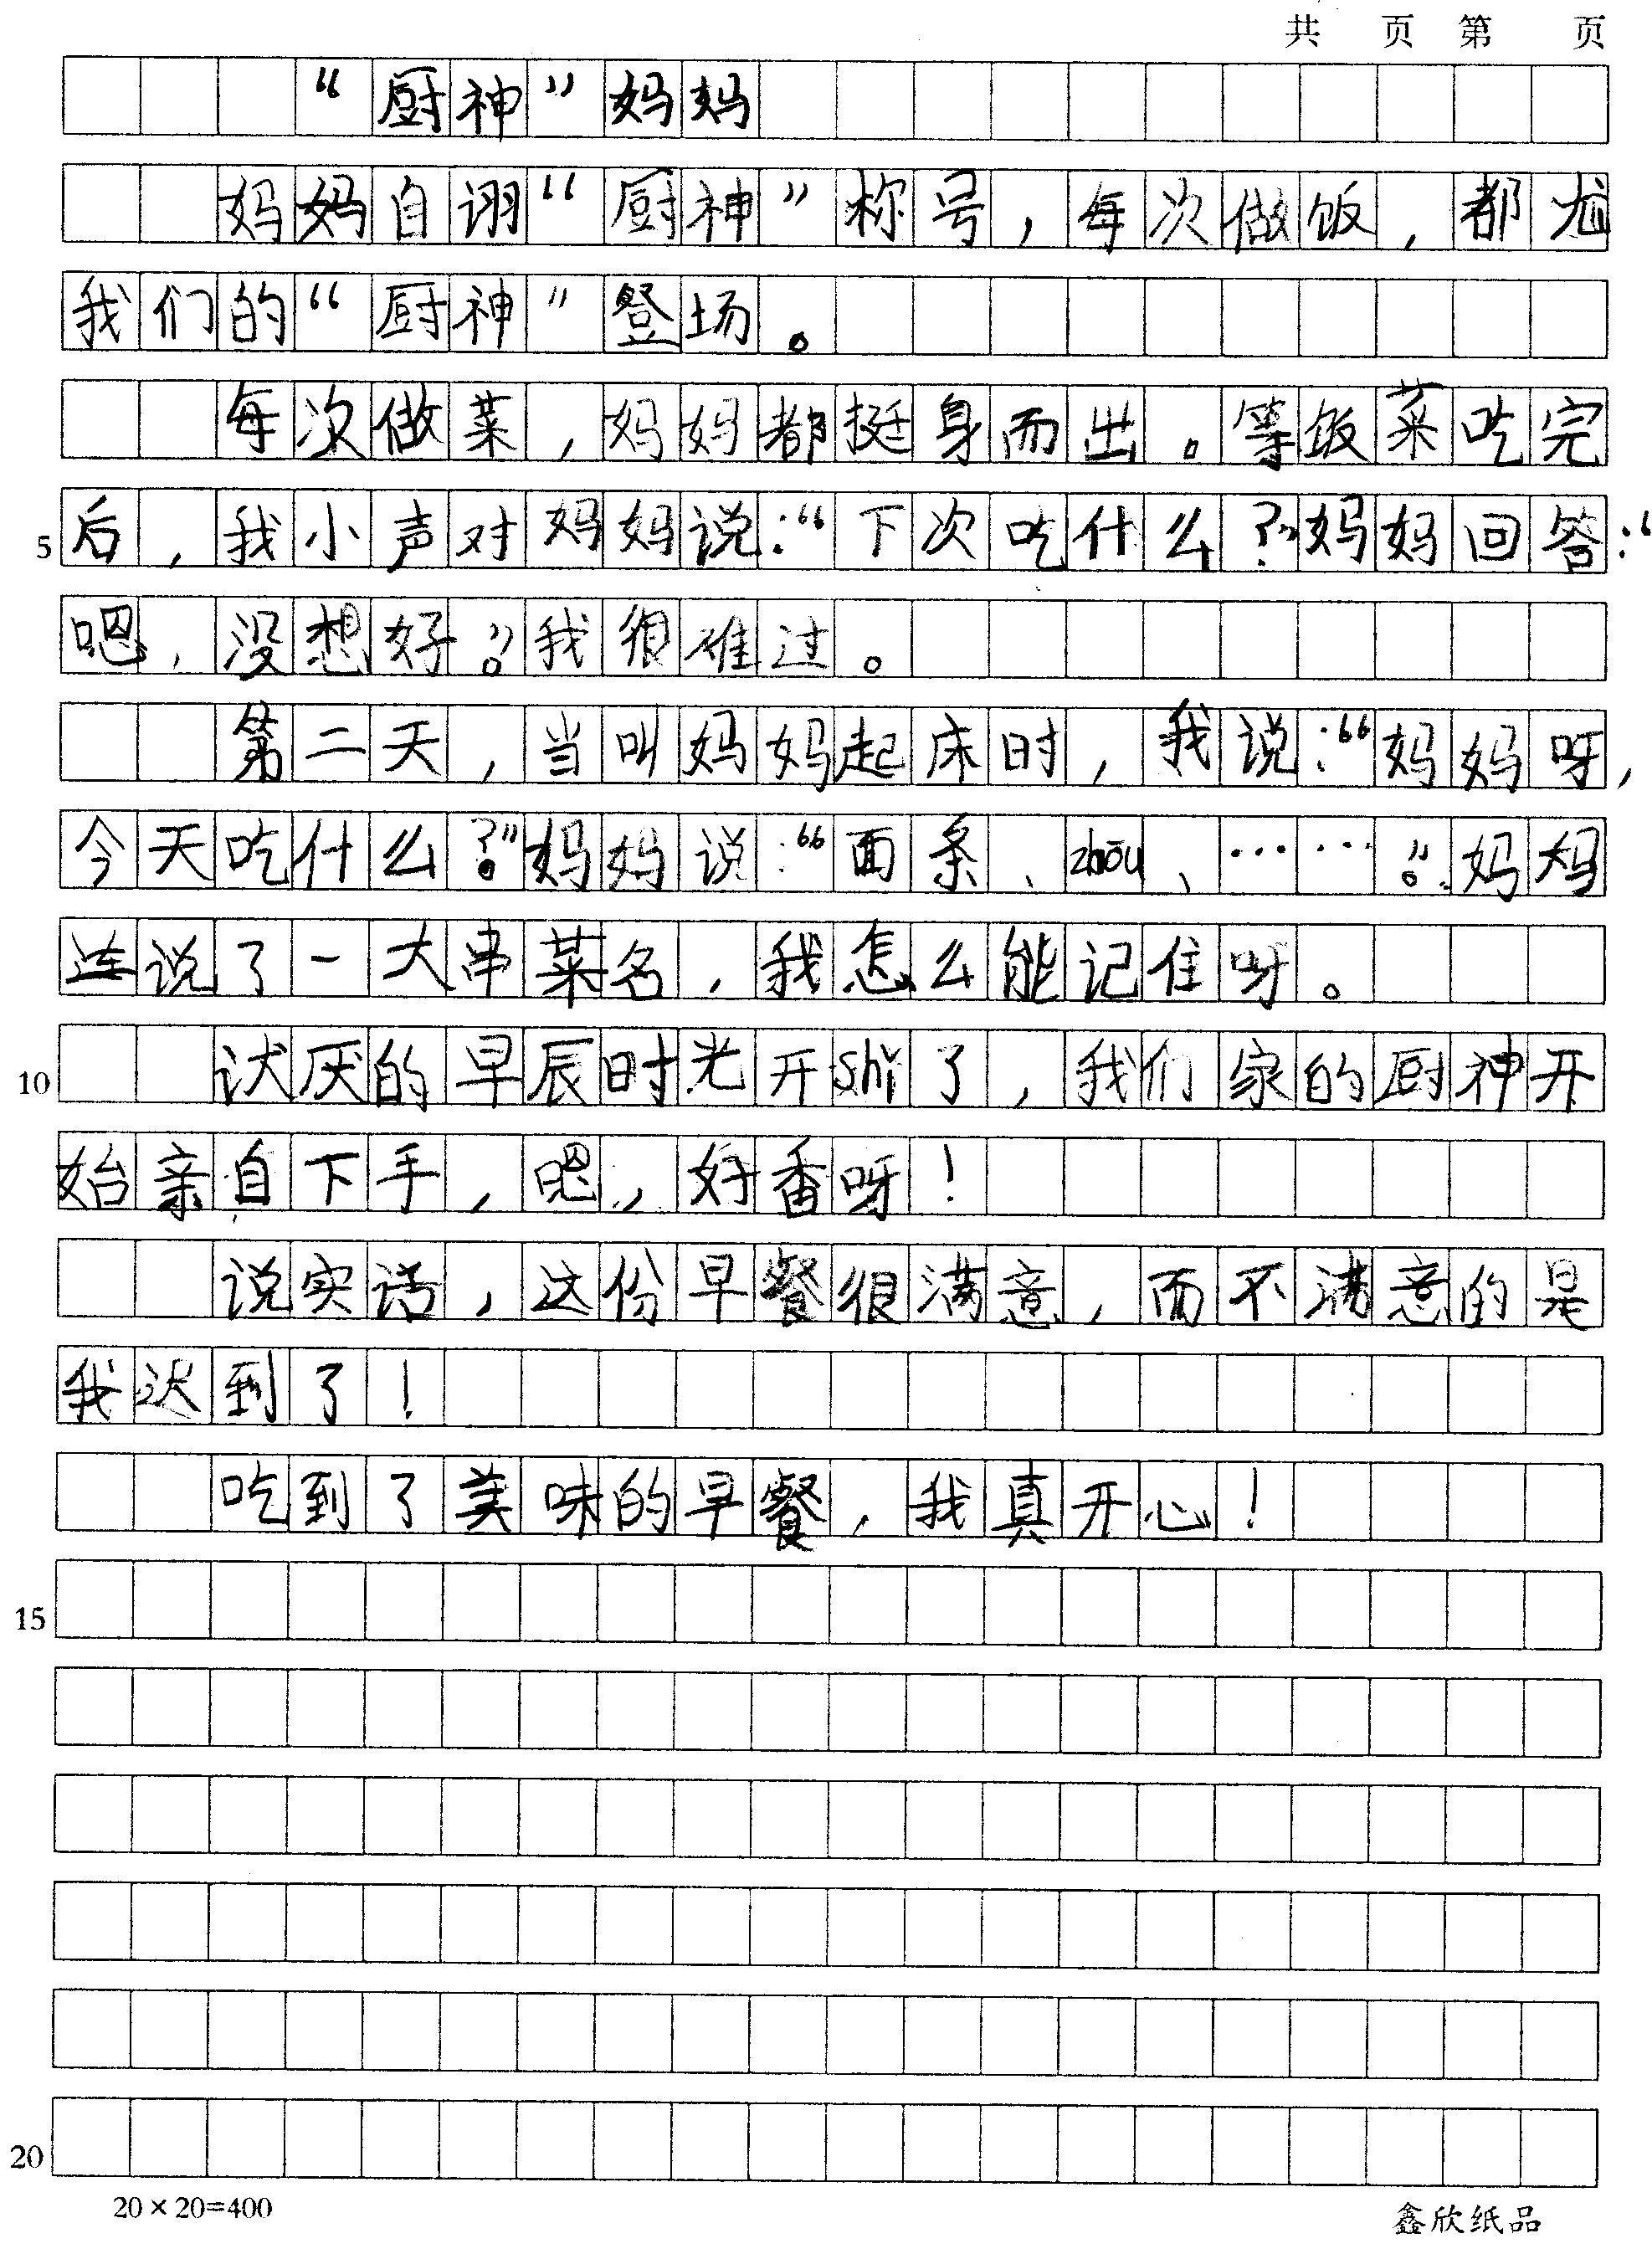 共 页 第 页
“厨神”妈妈
妈妈自诩“厨神”称号，每次做饭，都尬
我们的“厨神”登场。
每次做菜，妈妈都挺身而出。等饭菜吃完
5 后，我小声对妈妈说：“下次吃什么？”妈妈回答：“
嗯，没想好。”我很难过。
第二天，当叫妈妈起床时，我说：“妈妈呀，
今天吃什么？”妈妈说：“面条、zhōu、……。”妈妈
连说了一大串菜名，我怎么能记住呀。
10 讨厌的早辰时光开shǐ了，我们家的厨神开
始亲自下手，嗯，好香呀！
说实话，这份早餐很满意，而不满意的是
我迟到了！
吃到了美味的早餐，我真开心！
15
20
20×20=400 鑫欣纸品